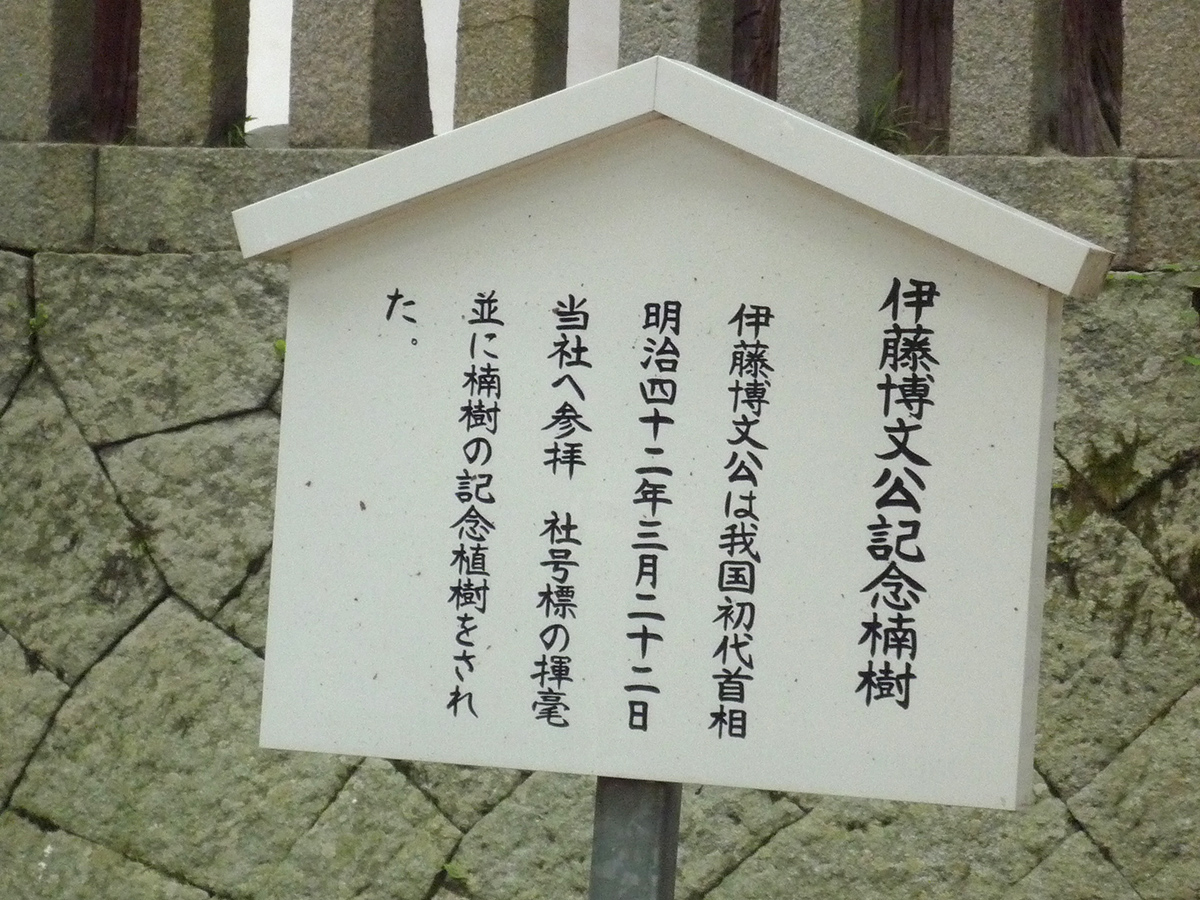 伊藤博文公記念楠樹
伊藤博文公は我国初代首相
明治四十二年三月二十二日
当社へ参拝　社号標の揮毫
並に楠樹の記念植樹をされ
た。